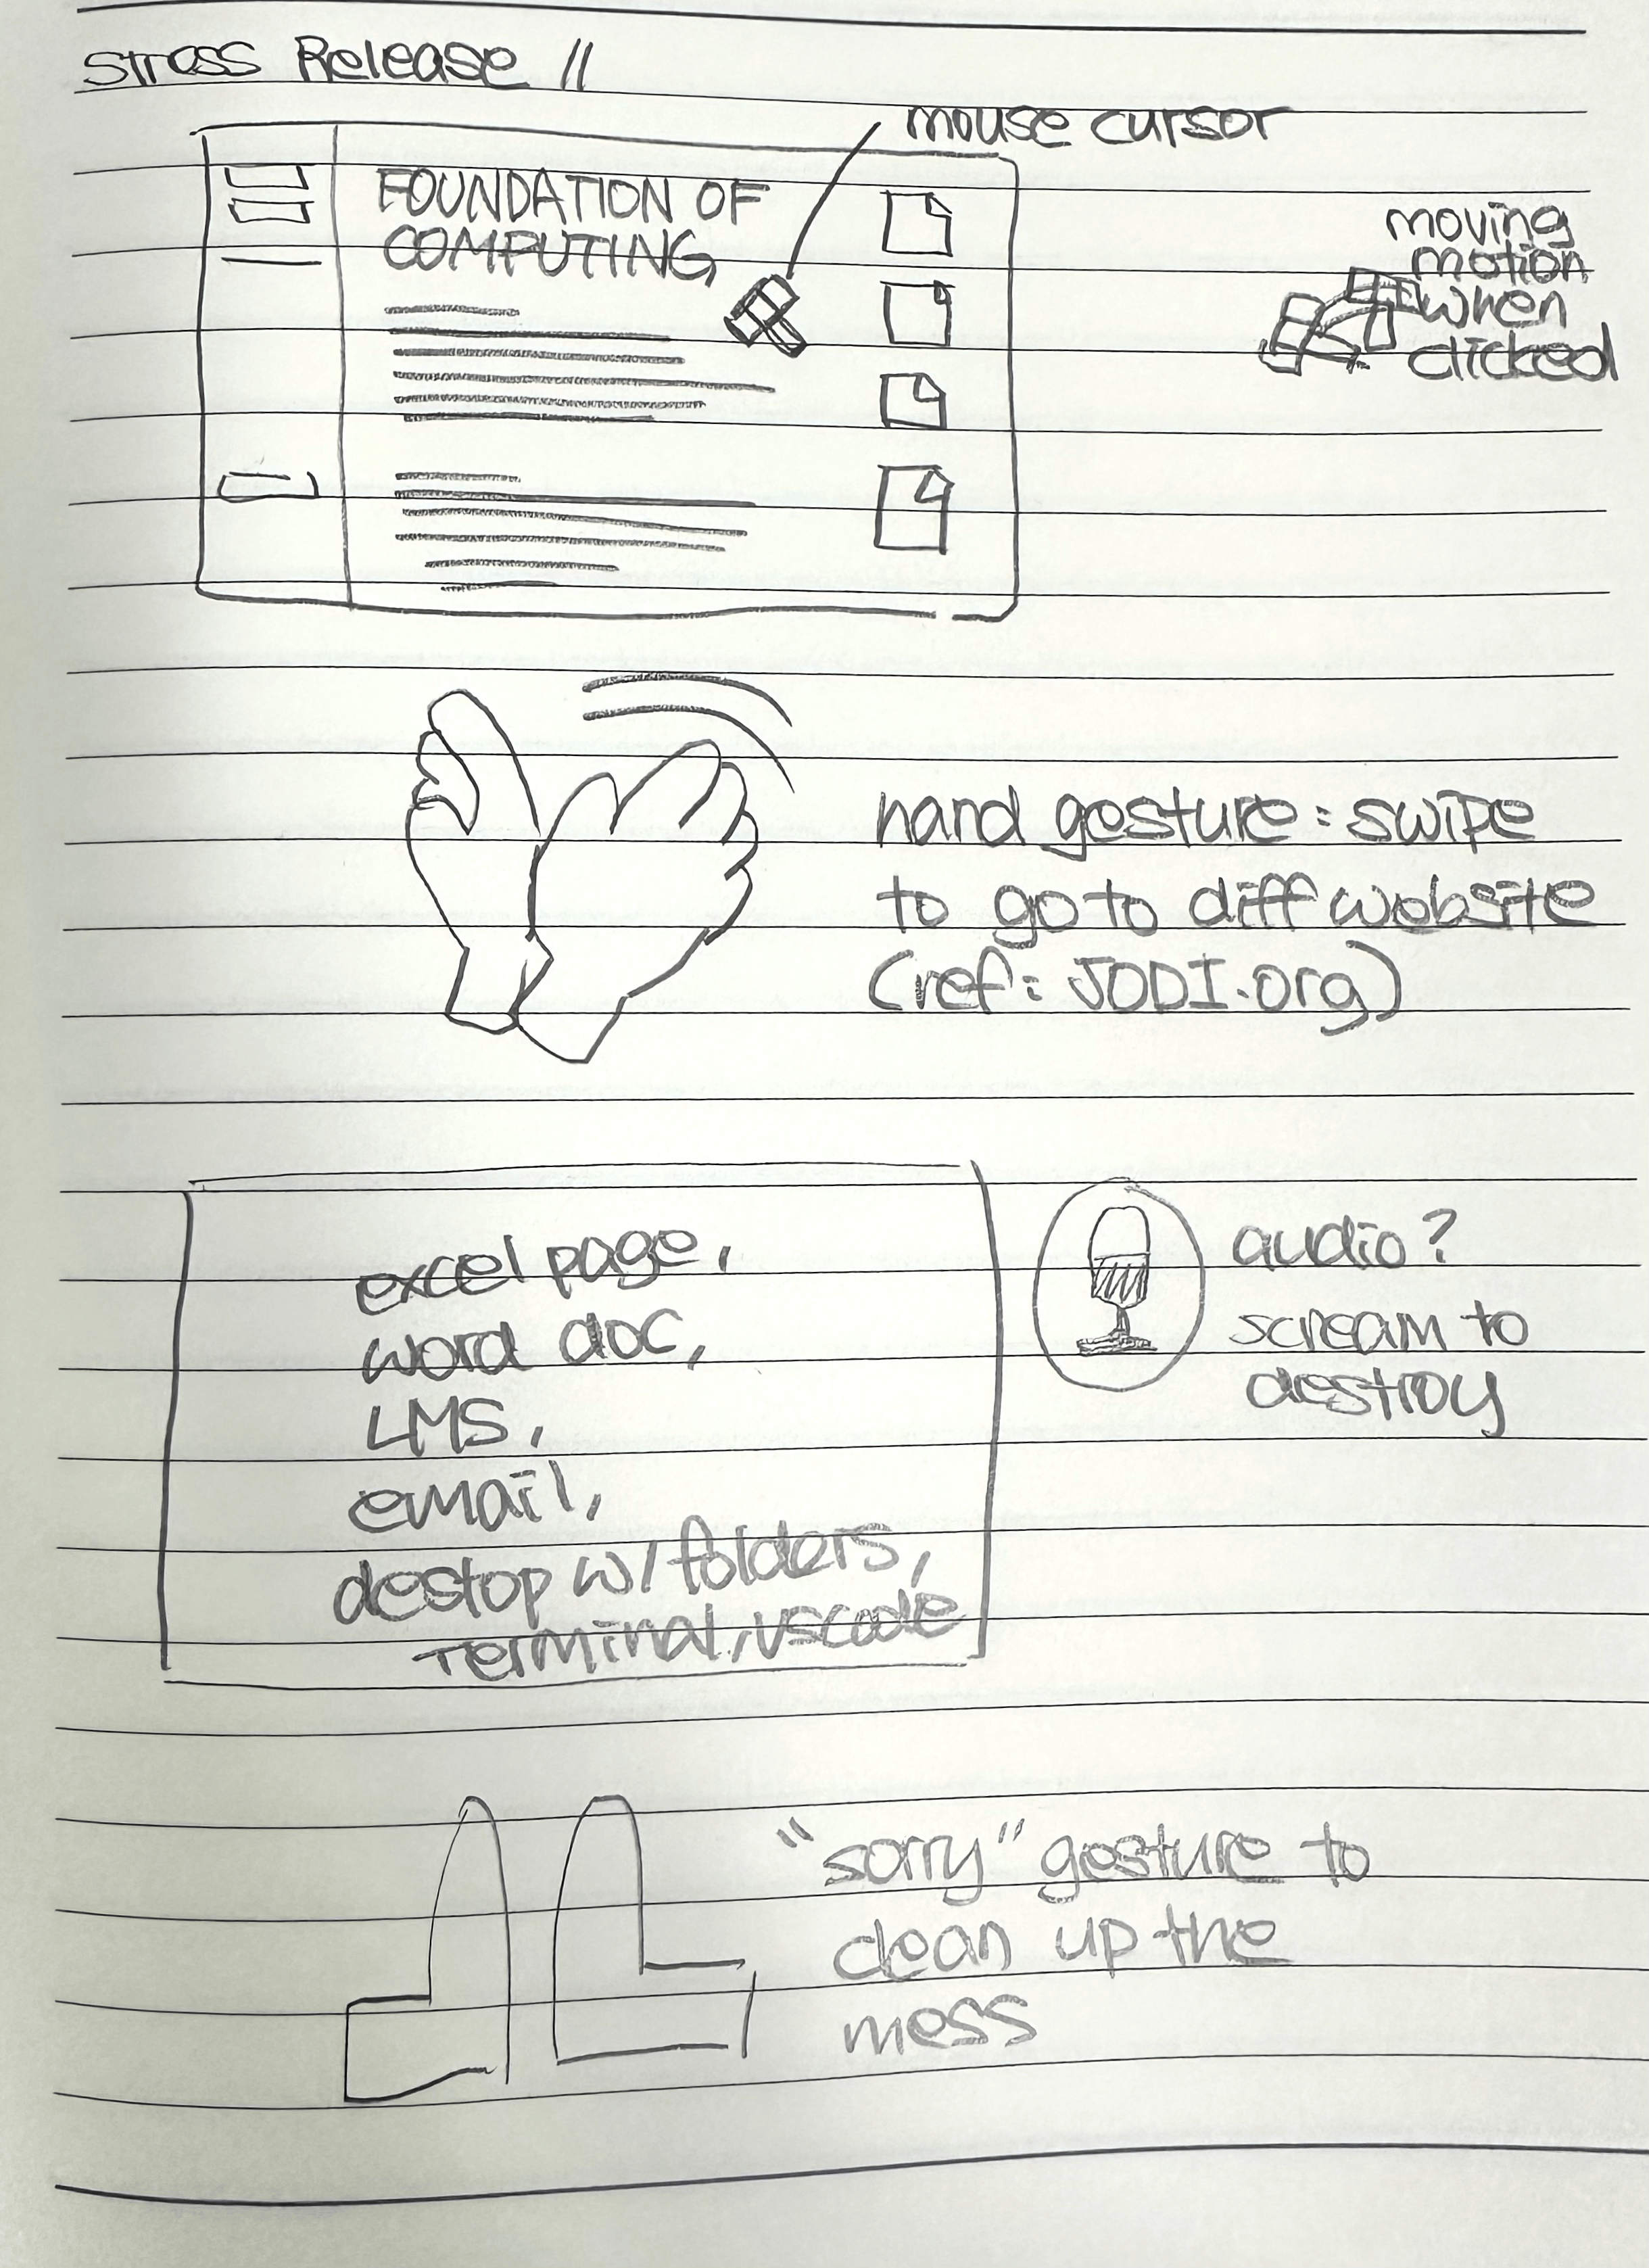 Stress Release //
mouse cursor
FOUNDATION OF
COMPUTING
moving
motion
when
clicked
hand gesture: swipe
to go to diff website
(ref: JODI.org)
excel page,
word doc,
LMS,
email,
destop w/ folders,
terminal, vscode
audio?
scream to
destroy
"sorry" gesture to
clean up the
mess